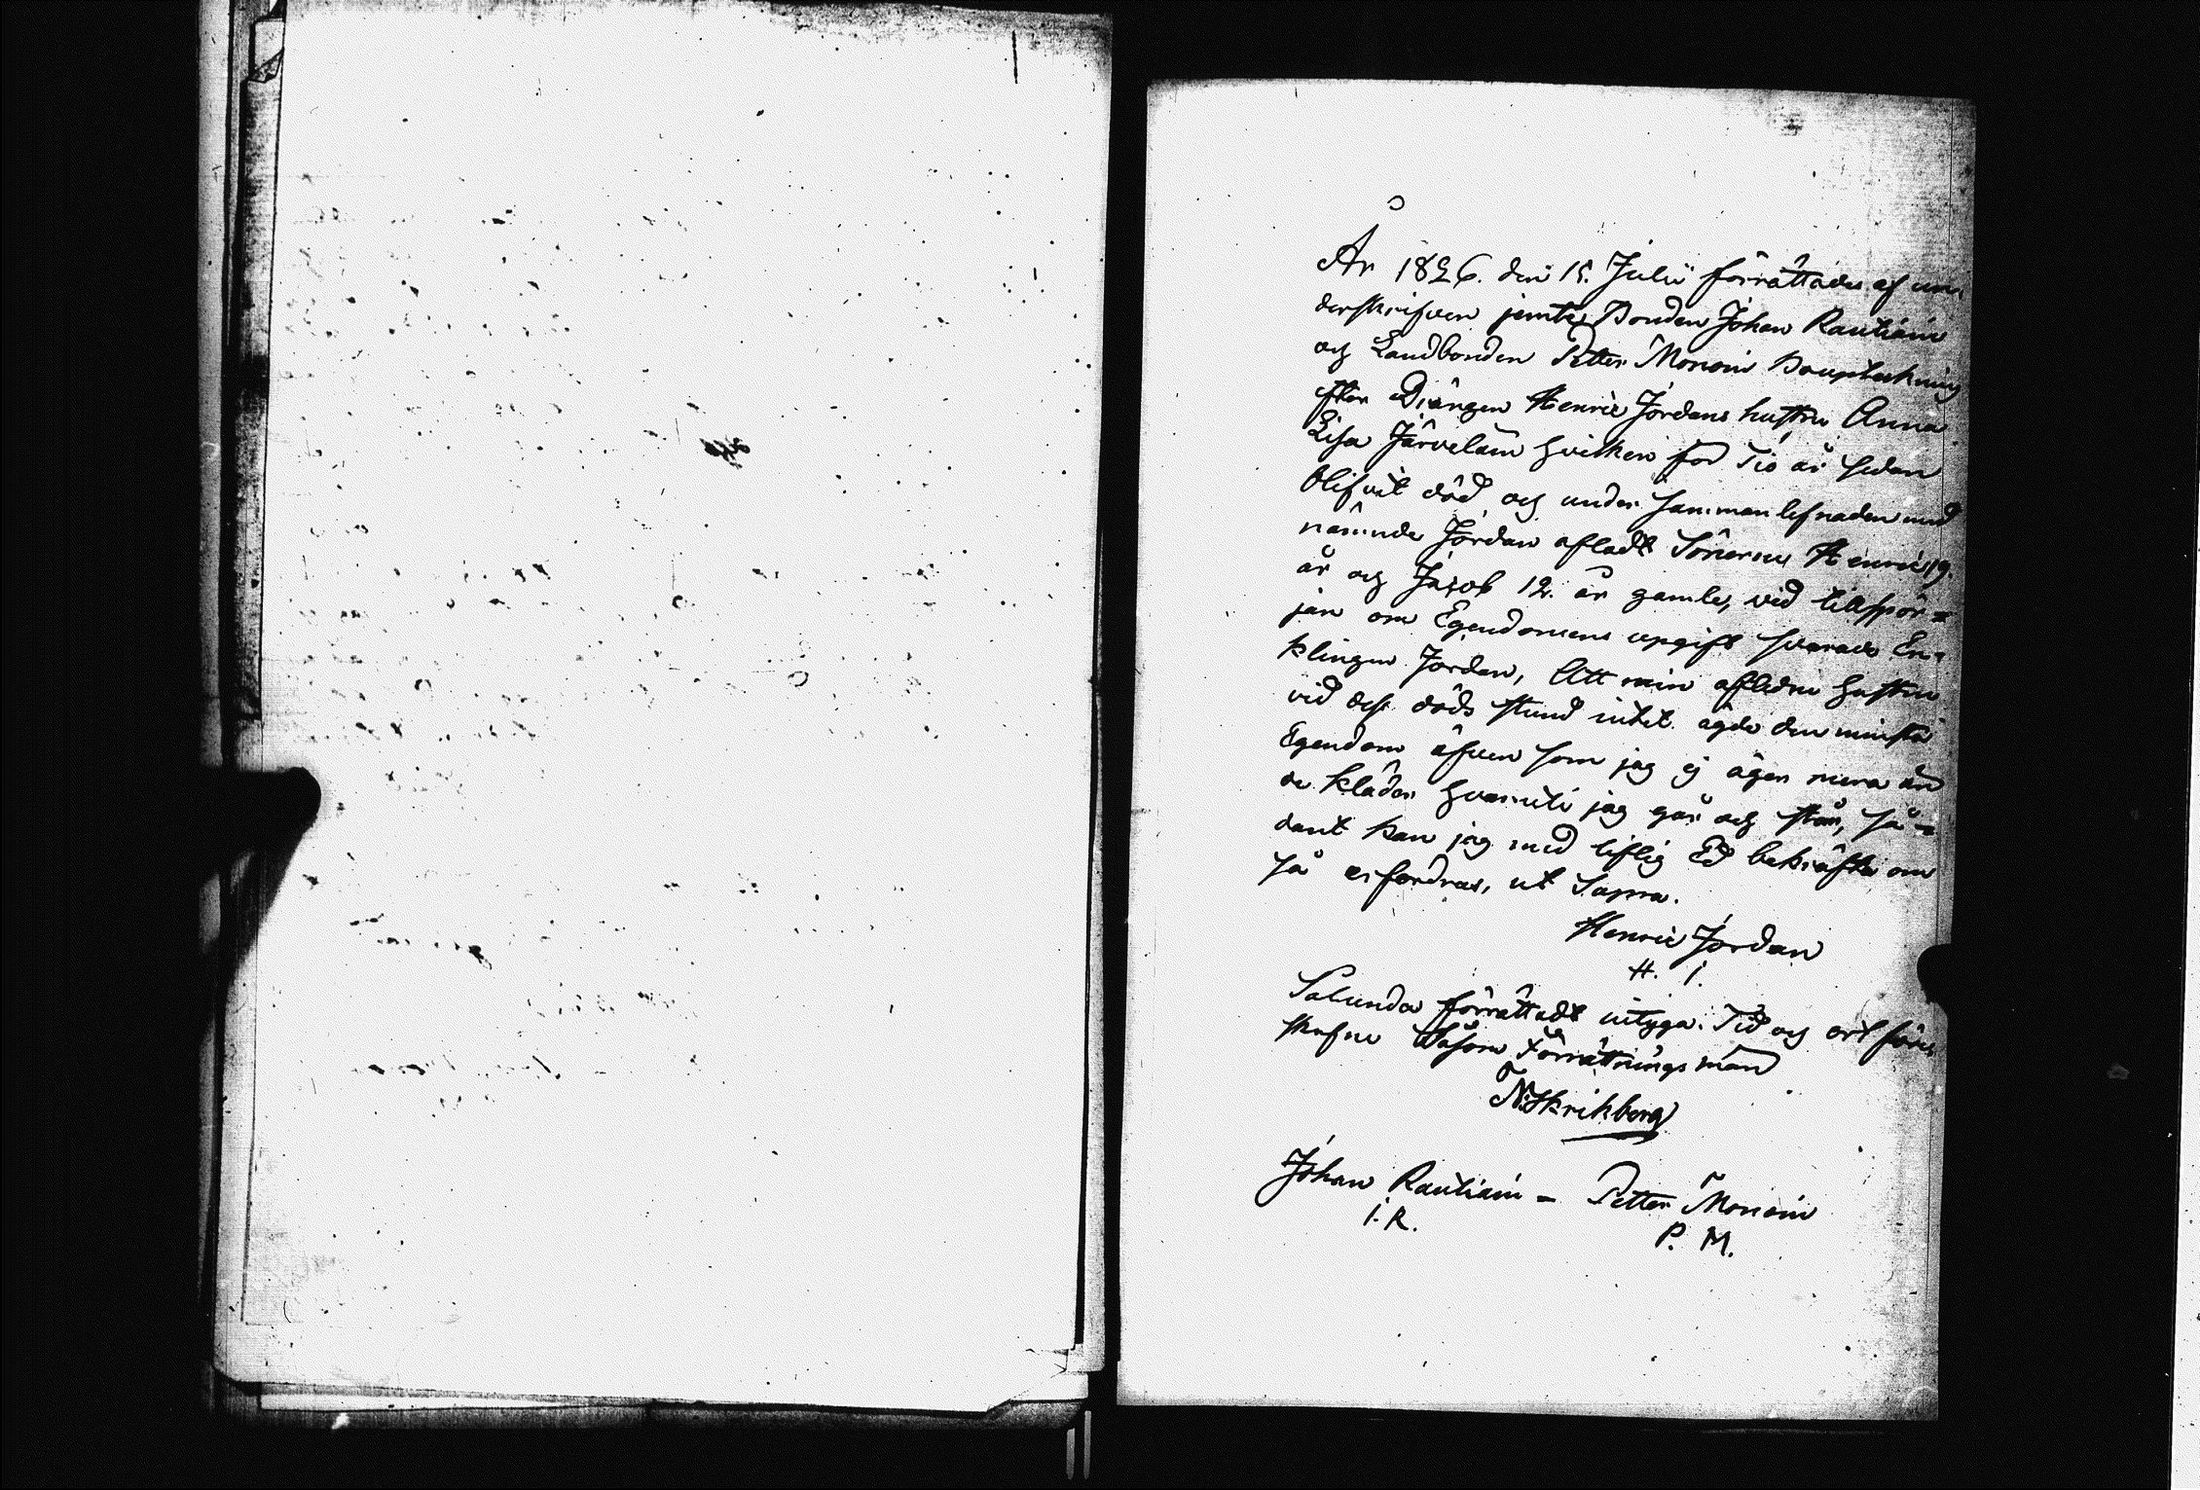 År 1826. den 15. Julii förrättades af un-
derskrifven jemte Bonden Johan Rautiain
och Landbonden Petter Monoin Bouptekning
efter Drängen Henric Jordans hustru Anna
Lisa Järveläin hvilken för Tio år sedan
blifvit död och under sammanlefnaden med
nämnde Jordan afladt Sönerne Henric 19.
år och Jacob 12. år gamle, vid tillspör=
jan om Egendomens upgift svarade En-
klingen Jordan, Att min aflidne hustru
vid dess döds stund intet ägde den minsta
Egendom äfven som jag ej äger mera än
de kläder hvaruti jag går och står, så=
dant kan jag med liflig Ed bekräfta om
så erfordras, ut Supra.
Henric Jordan
H. I.
Salunda förrättadt intyga. Tid och ort före
skrefne Såsom Förrättningsmän
N: Skrikberg
Johan Rautiain - Petter Monoin
I. R. P. M.